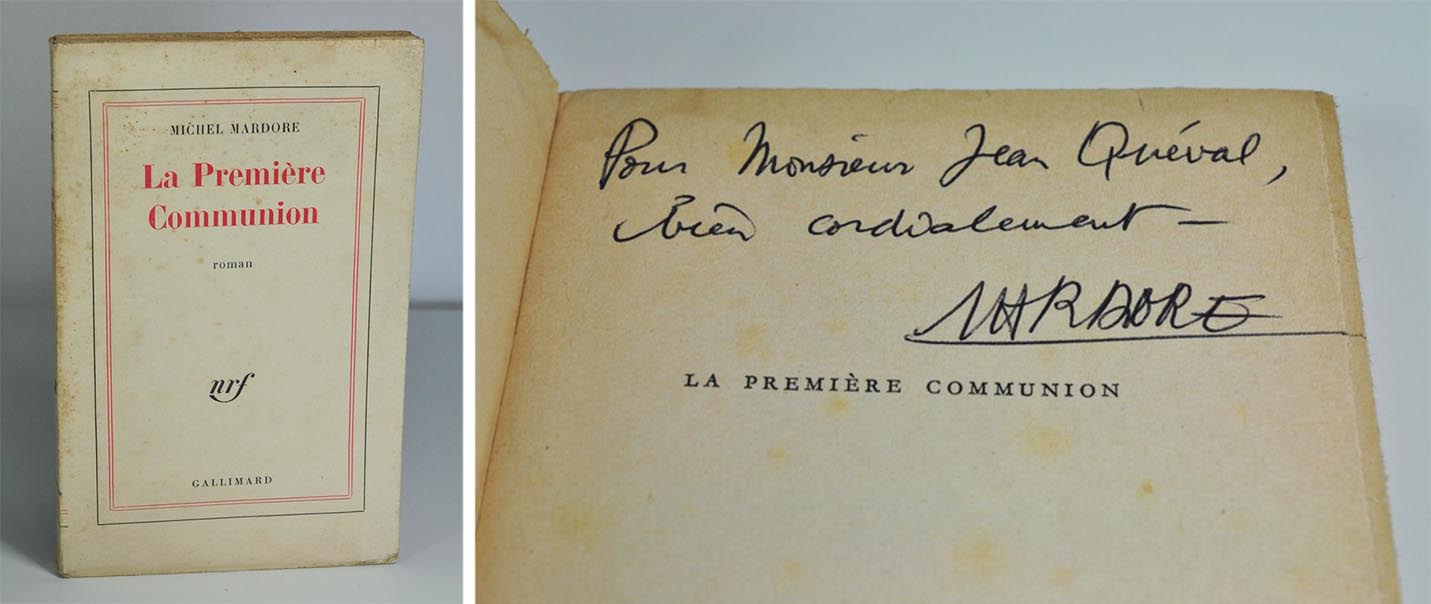 MICHEL MARDORE
La Première
Communion
roman
nrf
GALLIMARD
Pour Monsieur Jean Quéval,
bien cordialement —
MARDORE
LA PREMIÈRE COMMUNION